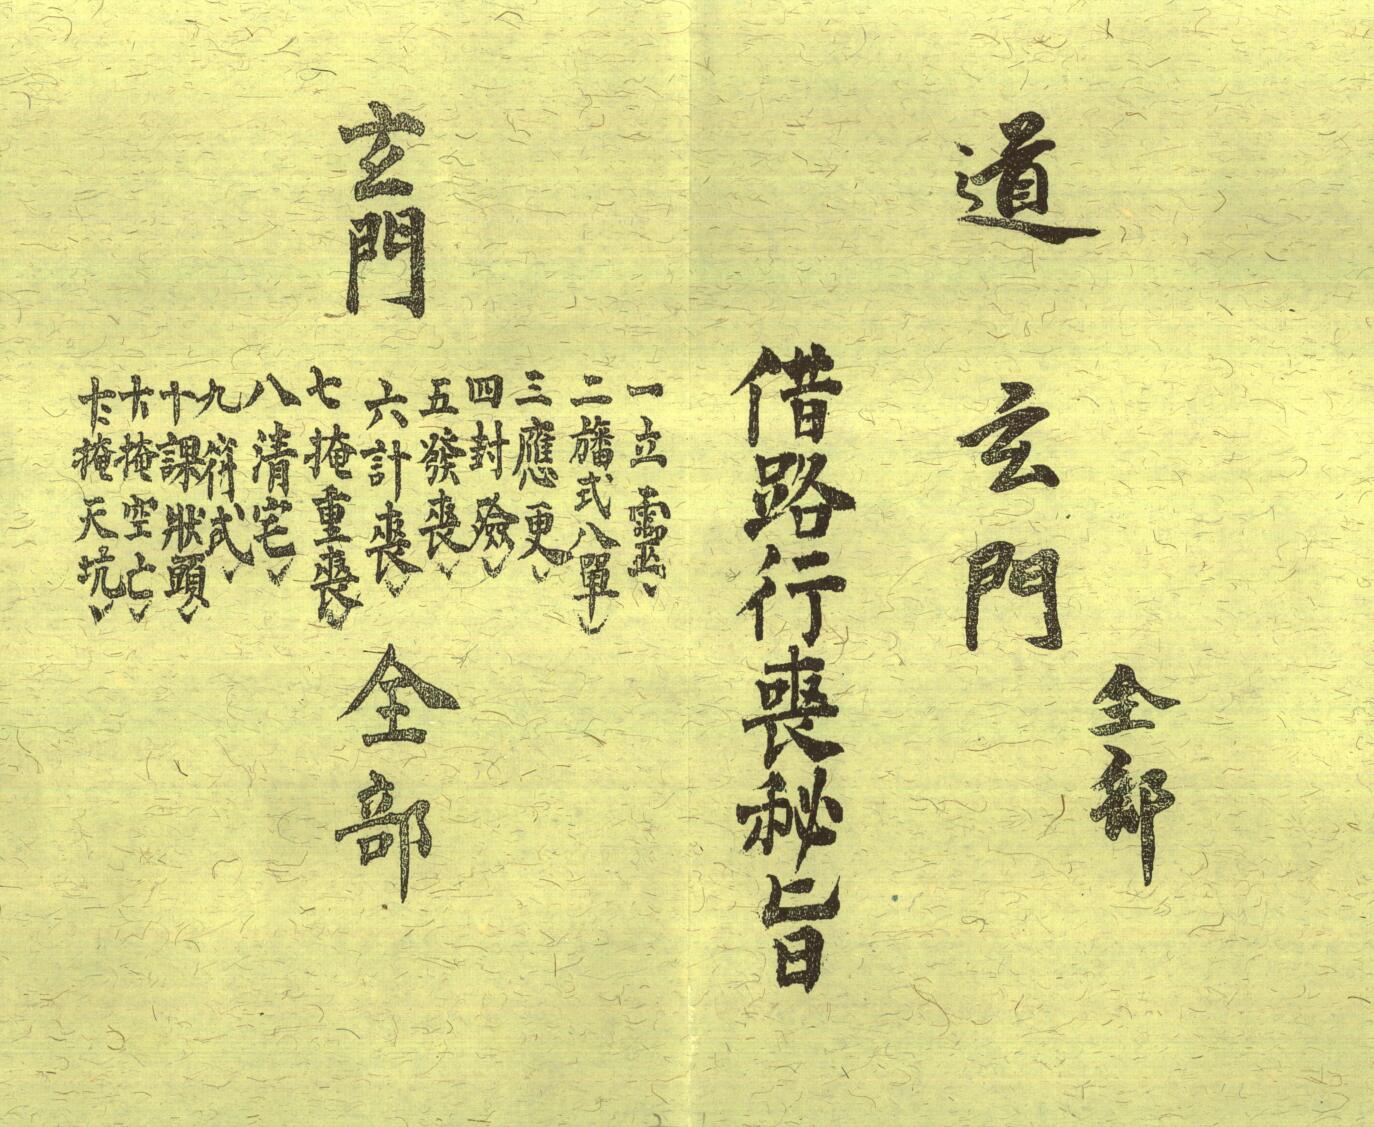 道
玄門
全部
借路行喪秘旨
玄門
一立靈
二旛式八單
三應更
四封殮
五發喪
六計喪
七掩重喪
八清宅
九符式
十課狀頭
十一掩空亡
十二掩天坑
全部